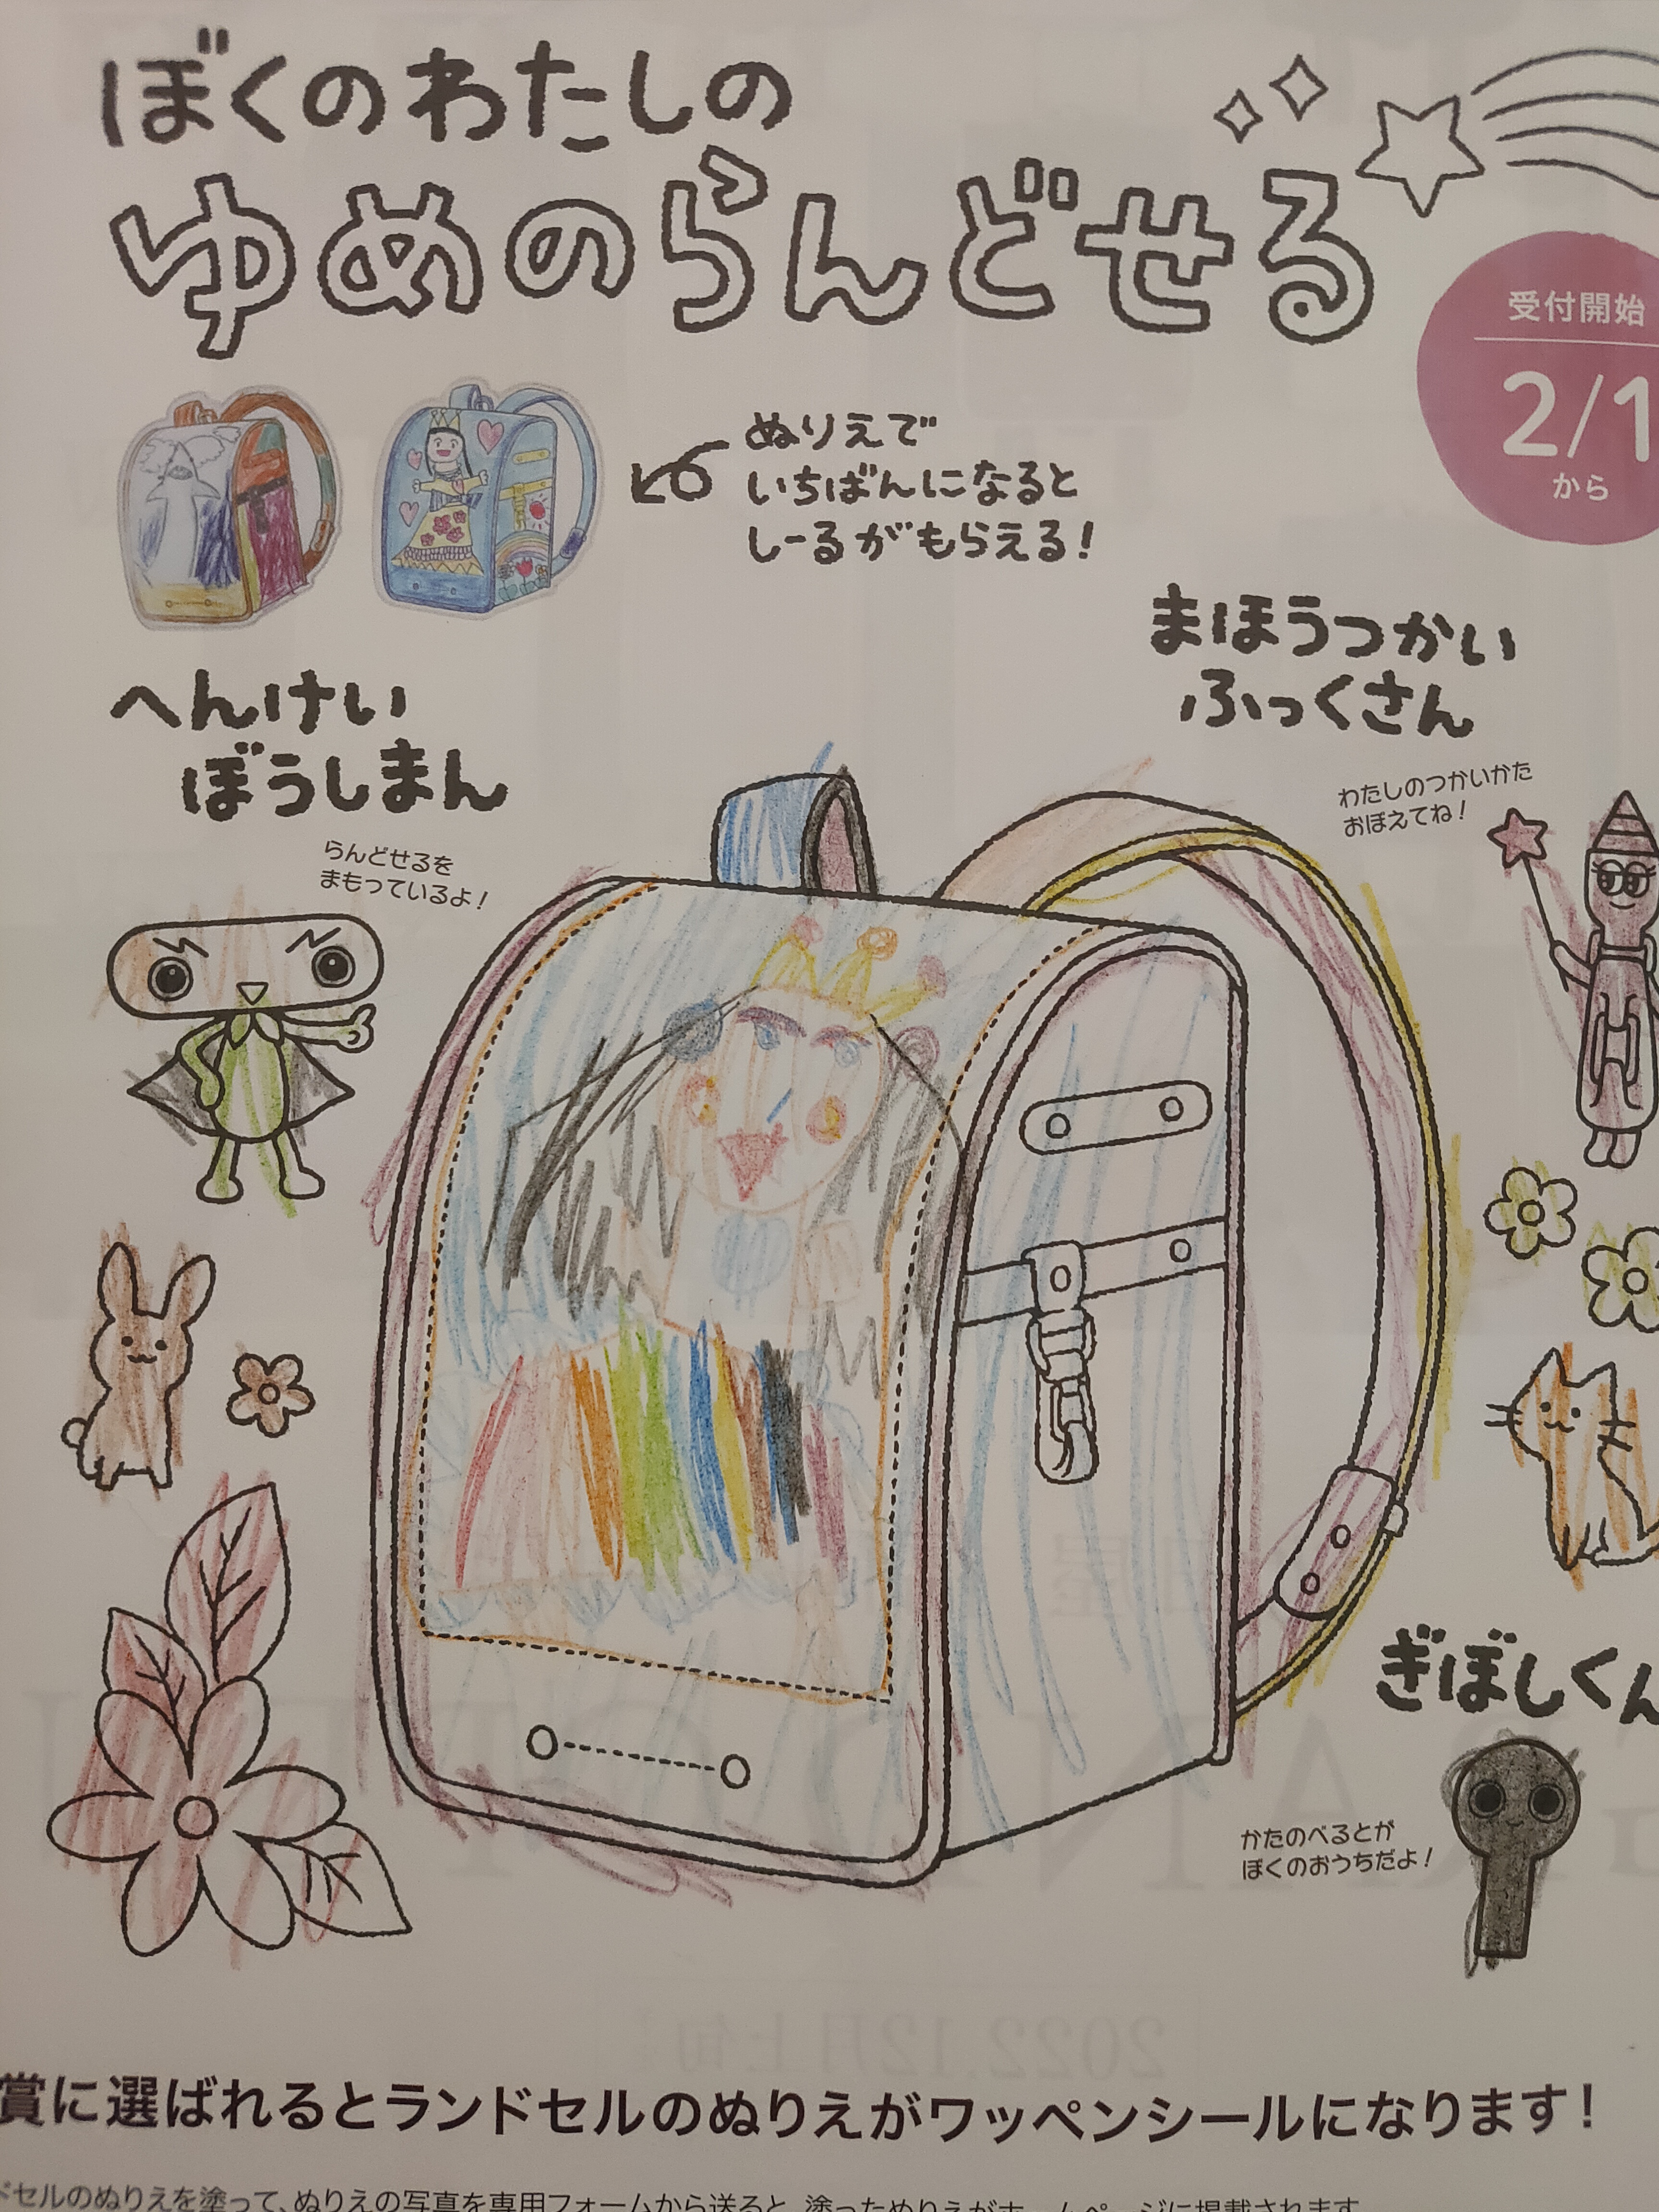 ぼくのわたしの
ゆめのらんどせる
受付開始
2/1
から
ぬりえで
いちばんになると
しーるがもらえる!
まほうつかい
ふっくさん
わたしのつかいかた
おぼえてね!
へんけい
ぼうしまん
らんどせるを
まもっているよ!
ぎぼしくん
かたのべるとが
ぼくのおうちだよ!
賞に選ばれるとランドセルのぬりえがワッペンシールになります!
ドセルのぬりえを塗って、ぬりえの写真を専用フォームから送ると、塗ったぬりえがホームページに掲載されます